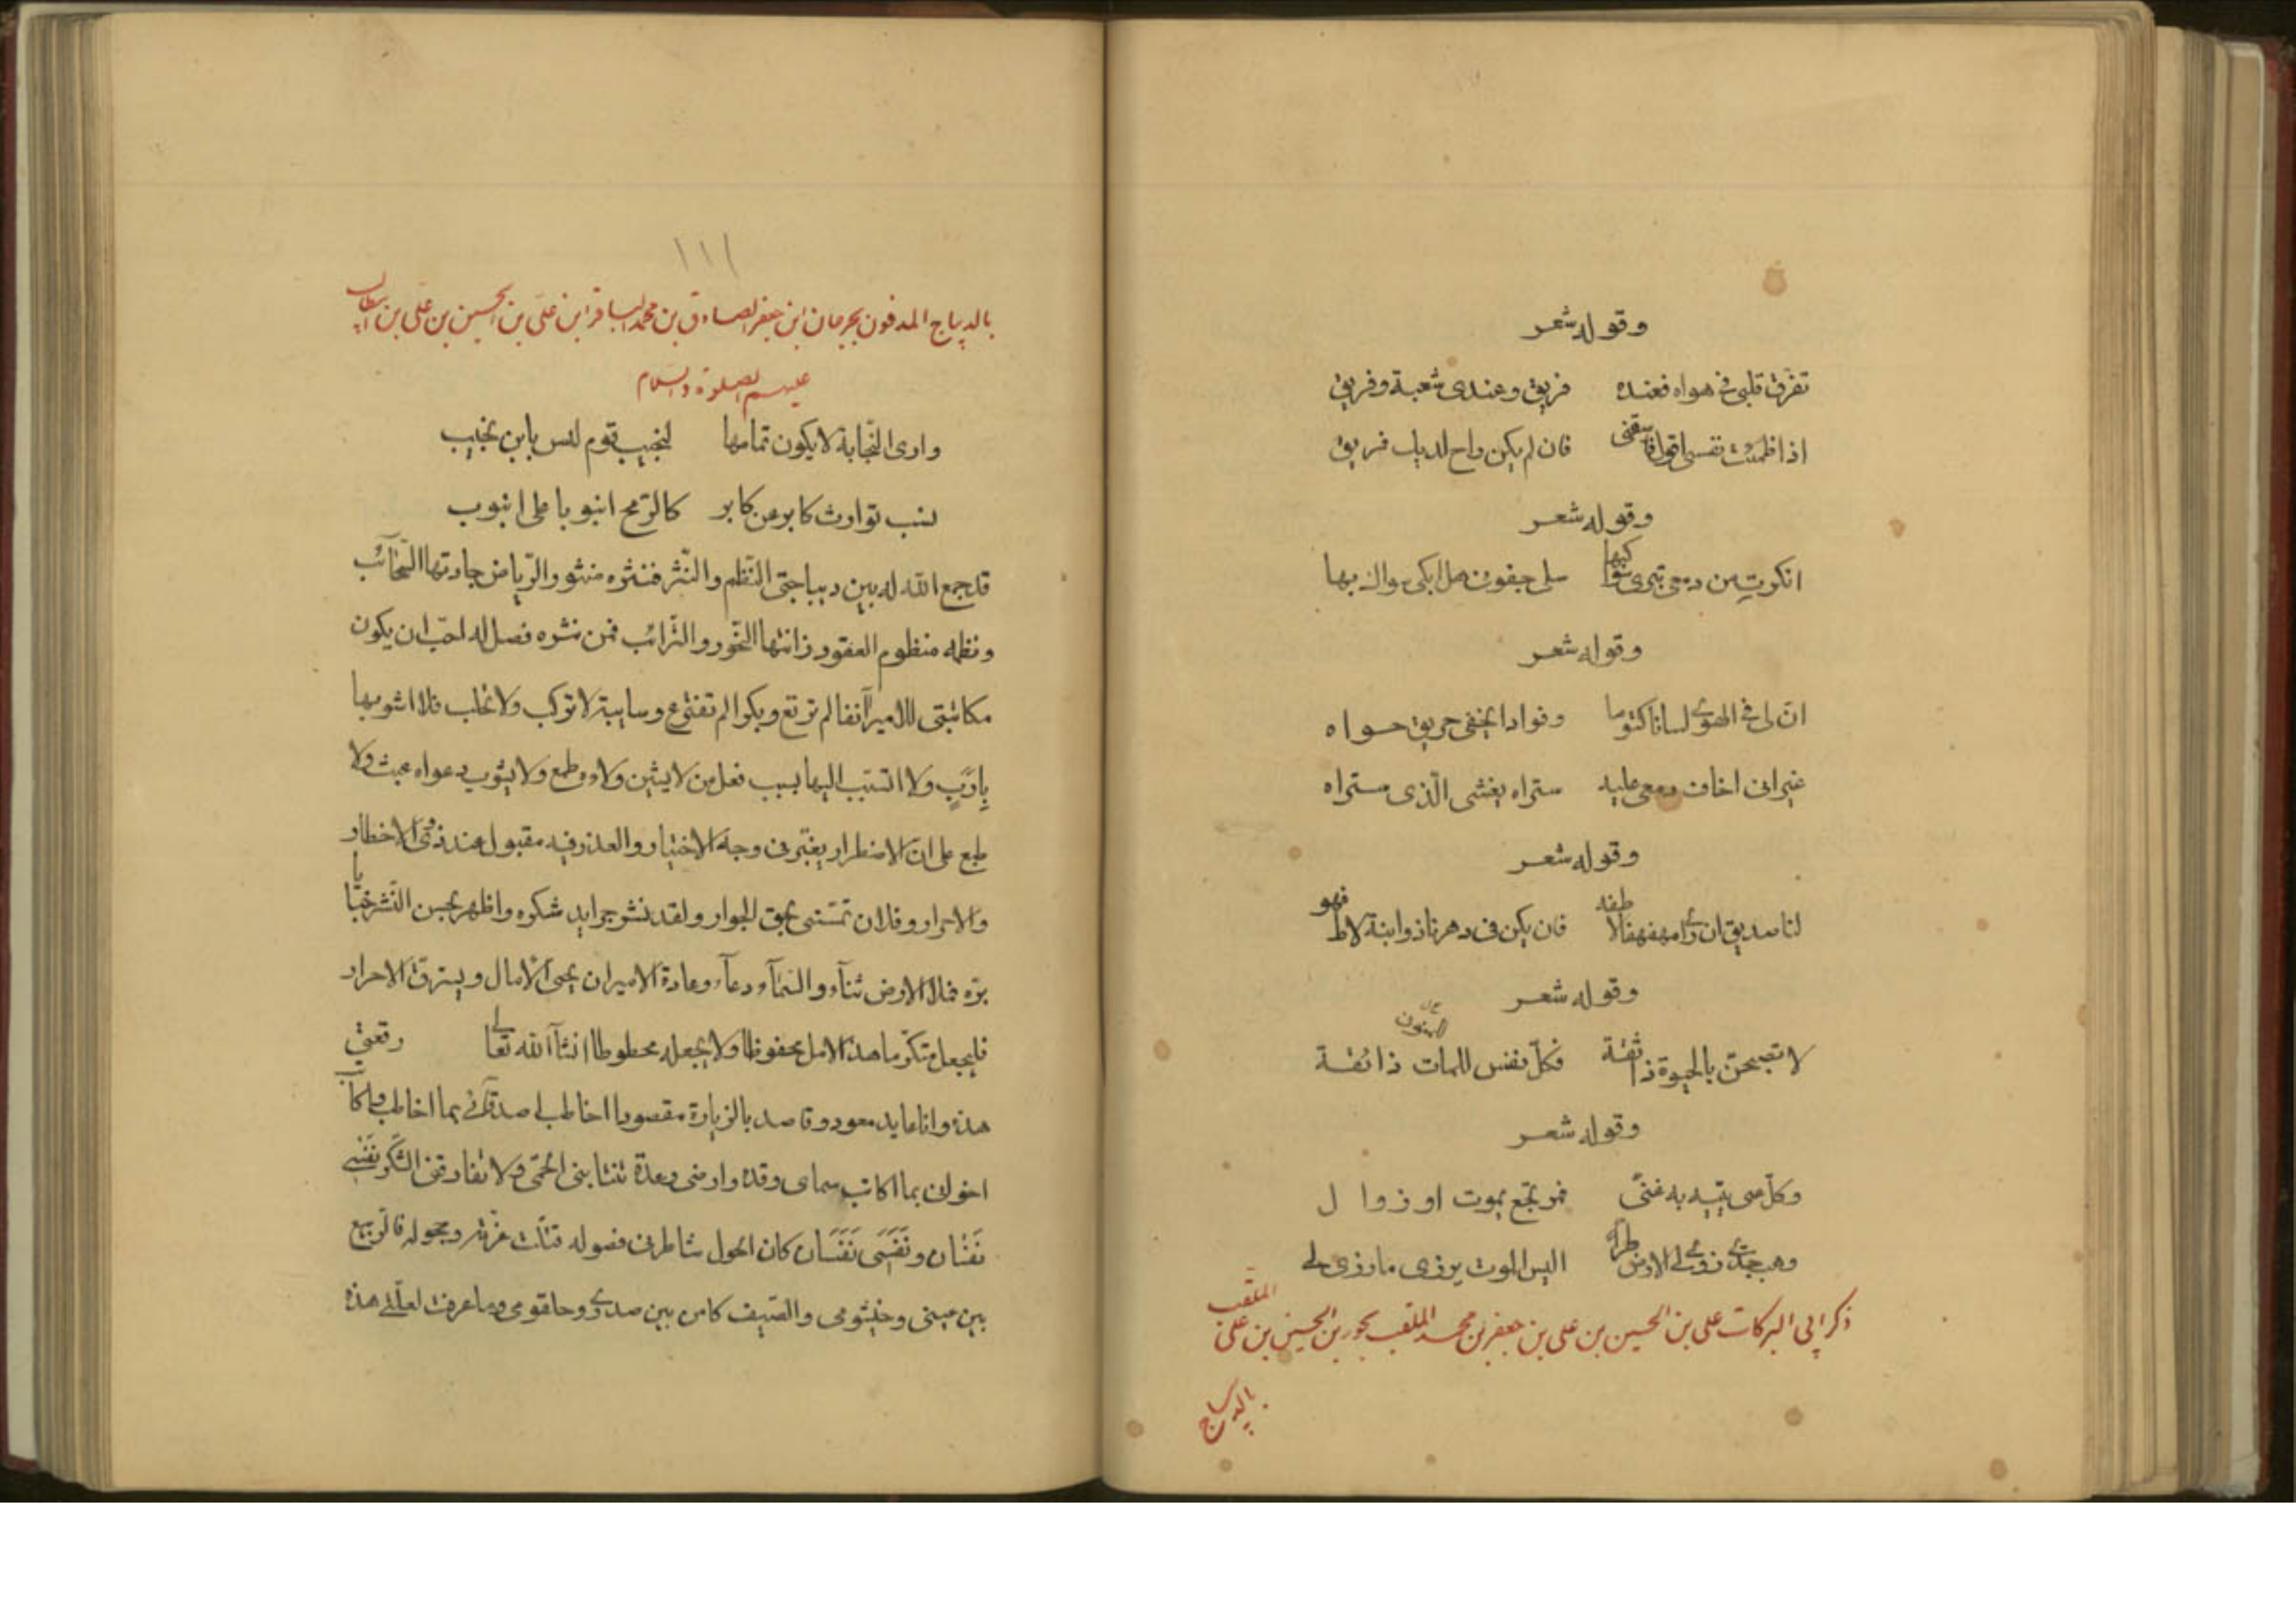 وقوله شعر
تفرق قلبى فى هواه فعنده فريق وعندى شعبة وفريق
اذا ظمئت نفسى اقول فاسقنى فان لم يكن راح لديك فريق
وقوله شعر
انكرتِ من دمعى تترى سواكبها سلى جفونى هل ابكى سواك بها
وقوله شعر
انّ لى فى الهوى لسانا كتوما وفوادا يخفى حريق حواه
غير انى اخاف دمعى عليه ستراه يفشى الّذى ستراه
وقوله شعر
لنا صديق ان رأى مهفهفا لاطفه فان يكن فى دهرنا ذو ابنة لاط فهو
وقوله شعر
لا تصبحنّ بالحيوة ذا ثقة فكلّ نفس للمات ذائقة
وقوله شعر
وكلّ غنى يتيه به غنىّ فمرتجع بموت او زوال
وهب جدّى زوى لى الارض طرا اليس الموت يزوى ما زوى لى
ذكر ابى البركات على بن الحسين بن على بن جعفر بن محمد الملقب بجور بن الحسين بن على الملقب
بالديباج
١١١
بالديباج المدفون بجرجان ابن جعفر الصادق بن محمد الباقر ابن على بن الحسين بن على بن ابيطالب
عليهم الصلوة والسلام
وارى النّجابة لا يكون تمامها لنجيب قوم ليس بابن نجيب
نسب توارث كابر عن كابر كالرّمح انبوبا على انبوب
قد جمع الله له بين ديباجتى النّظم والنّثر فنثره منثور الرّياض جادتها السّحائب
ونظمه منظوم العقود زانتها النّحور والتّرائب فمن نثره فصل له احبّ ان يكون
مكاتبتى للامير آنفا لم ترتع وبكرا لم تفترع وسايبة لا تركب ولا تحلب فلا اشوبها
بِارَبٍ ولا اتسبّب اليها بسبب فعل من لا يشين ولاءه طمع ولا يشوب دعواه عبث ولا
طبع على انّ الاضطرار يغبّر فى وجه الاختيار والعذر فيه مقبول عند ذوى الاخطار
والاحرار وفلان تمتنى بحق الجوار ولقد نشر جرايد شكره واظهر بحسن النّشر خبايا
برّه فملا الارض ثناء والسّماء دعاء وعادة الامير ان يحيى الآمال ويسترقّ الاحرار
فليجعل متكرّما هذا الامل محفوظا ولا يجعله محطوطا انشآ الله تعالى رقعتى
هذه وانا عايد معود وقاصد بالزيارة مقصود اخاطب اصدقائى بما اخاطب واكاتب
اخوانى بما اكاتب سماى وقدة وارضى رعدة تنتابنى الحمّى ولا تفارقنى الشّكر نفسى
نَفَسَان ونَفَسِى نَفَسَان كان الحول شاطرنى فصوله قبّلت غرّته وحجوله فالرّبيع
بين عينى وخيشومى والصّيف كامن بين صدرى وحلقومى وما عرفت لعلّتى هذه